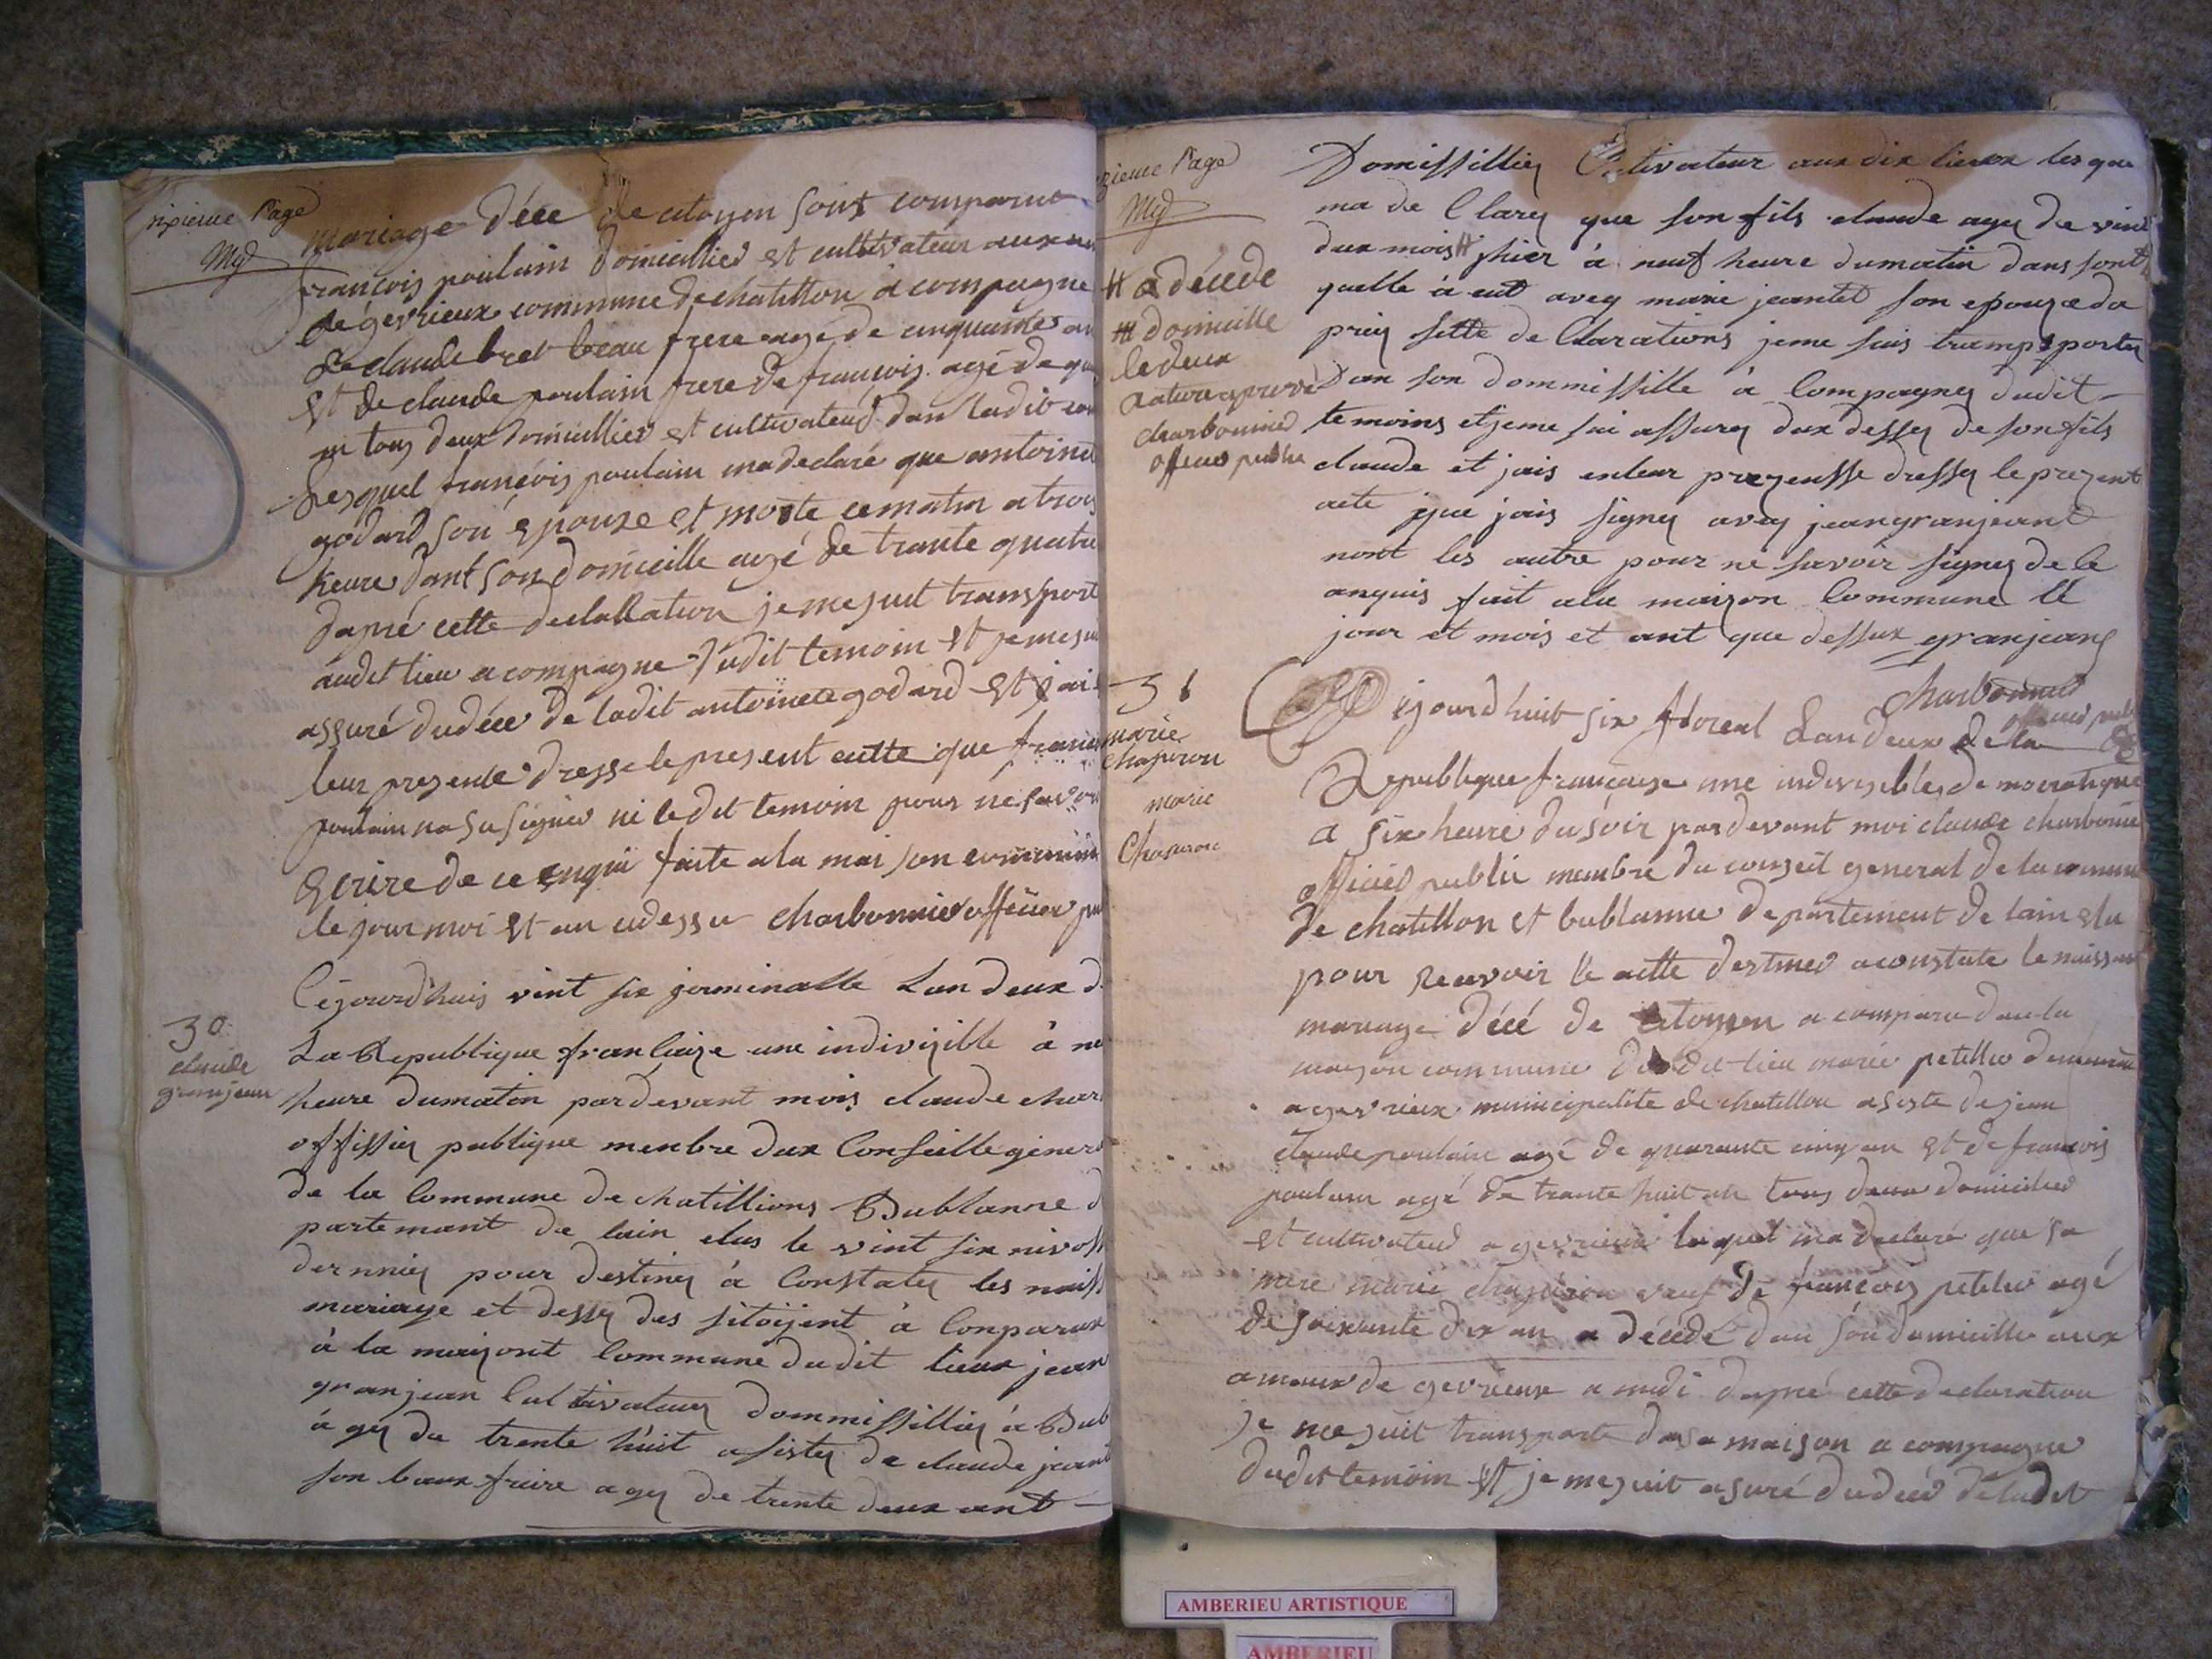 sixieme Page
Mgd
mariage déce de citoyen sont comparut
francois poulain domicillied et cultivateur aux
de gevrieux commune de chatillon a compagne
de claude bret beau frere agé de cinquantes an
et de claude poulain frere de francois agé de
an tous deux domicillied et cultivateud dan ladit
lesquel francois poulain ma declaré que antoinet
godard son epouse et morte ce matin a trois
heure dant son domicille agé de trante quatre
dapré cette declaration je me suit transport
audit lieu a compagne dudit temoin et je me
assuré du déce de ladit antoinete godard et jai
leur presende dresse le present actte que francois
poulain na su signer ni ledit temoin pour ne savoir
Ecrire de ce enqui faite a la mai son commune
le jour moi et an cidessu charbonnier officier
30
claude
granjean
Cejourdhuis vint six jerminalle Lan deux d
La Republique francaize une indivizible à
heure dumatin pardevant mois claude char
offissier publique menbre dux Conseille géner
de la Commune de chatillions Bublanne d
partemant de lain elus le vint six nivos
dernnier pour destiner à Constater les naiss
mariage et desser des sitoijent à Conparux
à la maizont Commune dudit lieux jean
granjean Cultivateur dommissillier à Bub
à ger de trente huit asister de claude jeant
son baux fraire a ger de trente deux ant
Page
Mgd
Domissillier Cultivateur aux dix lieux les que
ma de Clarer que son fils claude ager de vint
dux mois # hier à neuf heure dumatin dans sont
quelle à eut aveq marie jeantet son epouze da
prier sette de Clarations jeme suis trampsporter
Dan son dommissille à Compagner dudit
temoins et jeme sui assurer dux desser de son fils
claude et jais enleur prezensse dresser le prezent
acte que jais signer aveq jean granjeant
nont les autre pour ne savoir signer de le
anquis fait ala maizon Commune le
jour et mois et ant que dessux granjean
charbonnied
# a décede
## domicille
le deux
rature aprové
charbonnied
officier public
31
marie
chaperon
marie
Chaperon
Cejourdhuit six floreal Lan deux de la
Republique francaise une indivisibles de mocratique
a six heure du soir par devant moi claude charbonie
officied public manbre du conseil general de la commune
de chatillon et bublanne departement de lain elu
pour recevoir le actte destined a constate le naissan
mariage décé de citoyen a comparu dan la
maison commune dudit lieu marie petitlier demeuran
a gevrieux municipalite de chatillon asiste de jean
claude poulain agé de quarante cinq an et de francois
poulain agé de trante huit an tous deux domicilied
et cultivateud a gevrieux lequel ma declaré que sa
mere marie chaperon veuf de francois petitlier agé
de soixante dix an a décédé dan son domicille aux
amaux de gevrieux a midi dapré cette declaration
je me suit transporte dan sa maison a compagne
dudit temoin et je me suit asuré du déce de ladit
AMBERIEU ARTISTIQUE
AMBERIEU